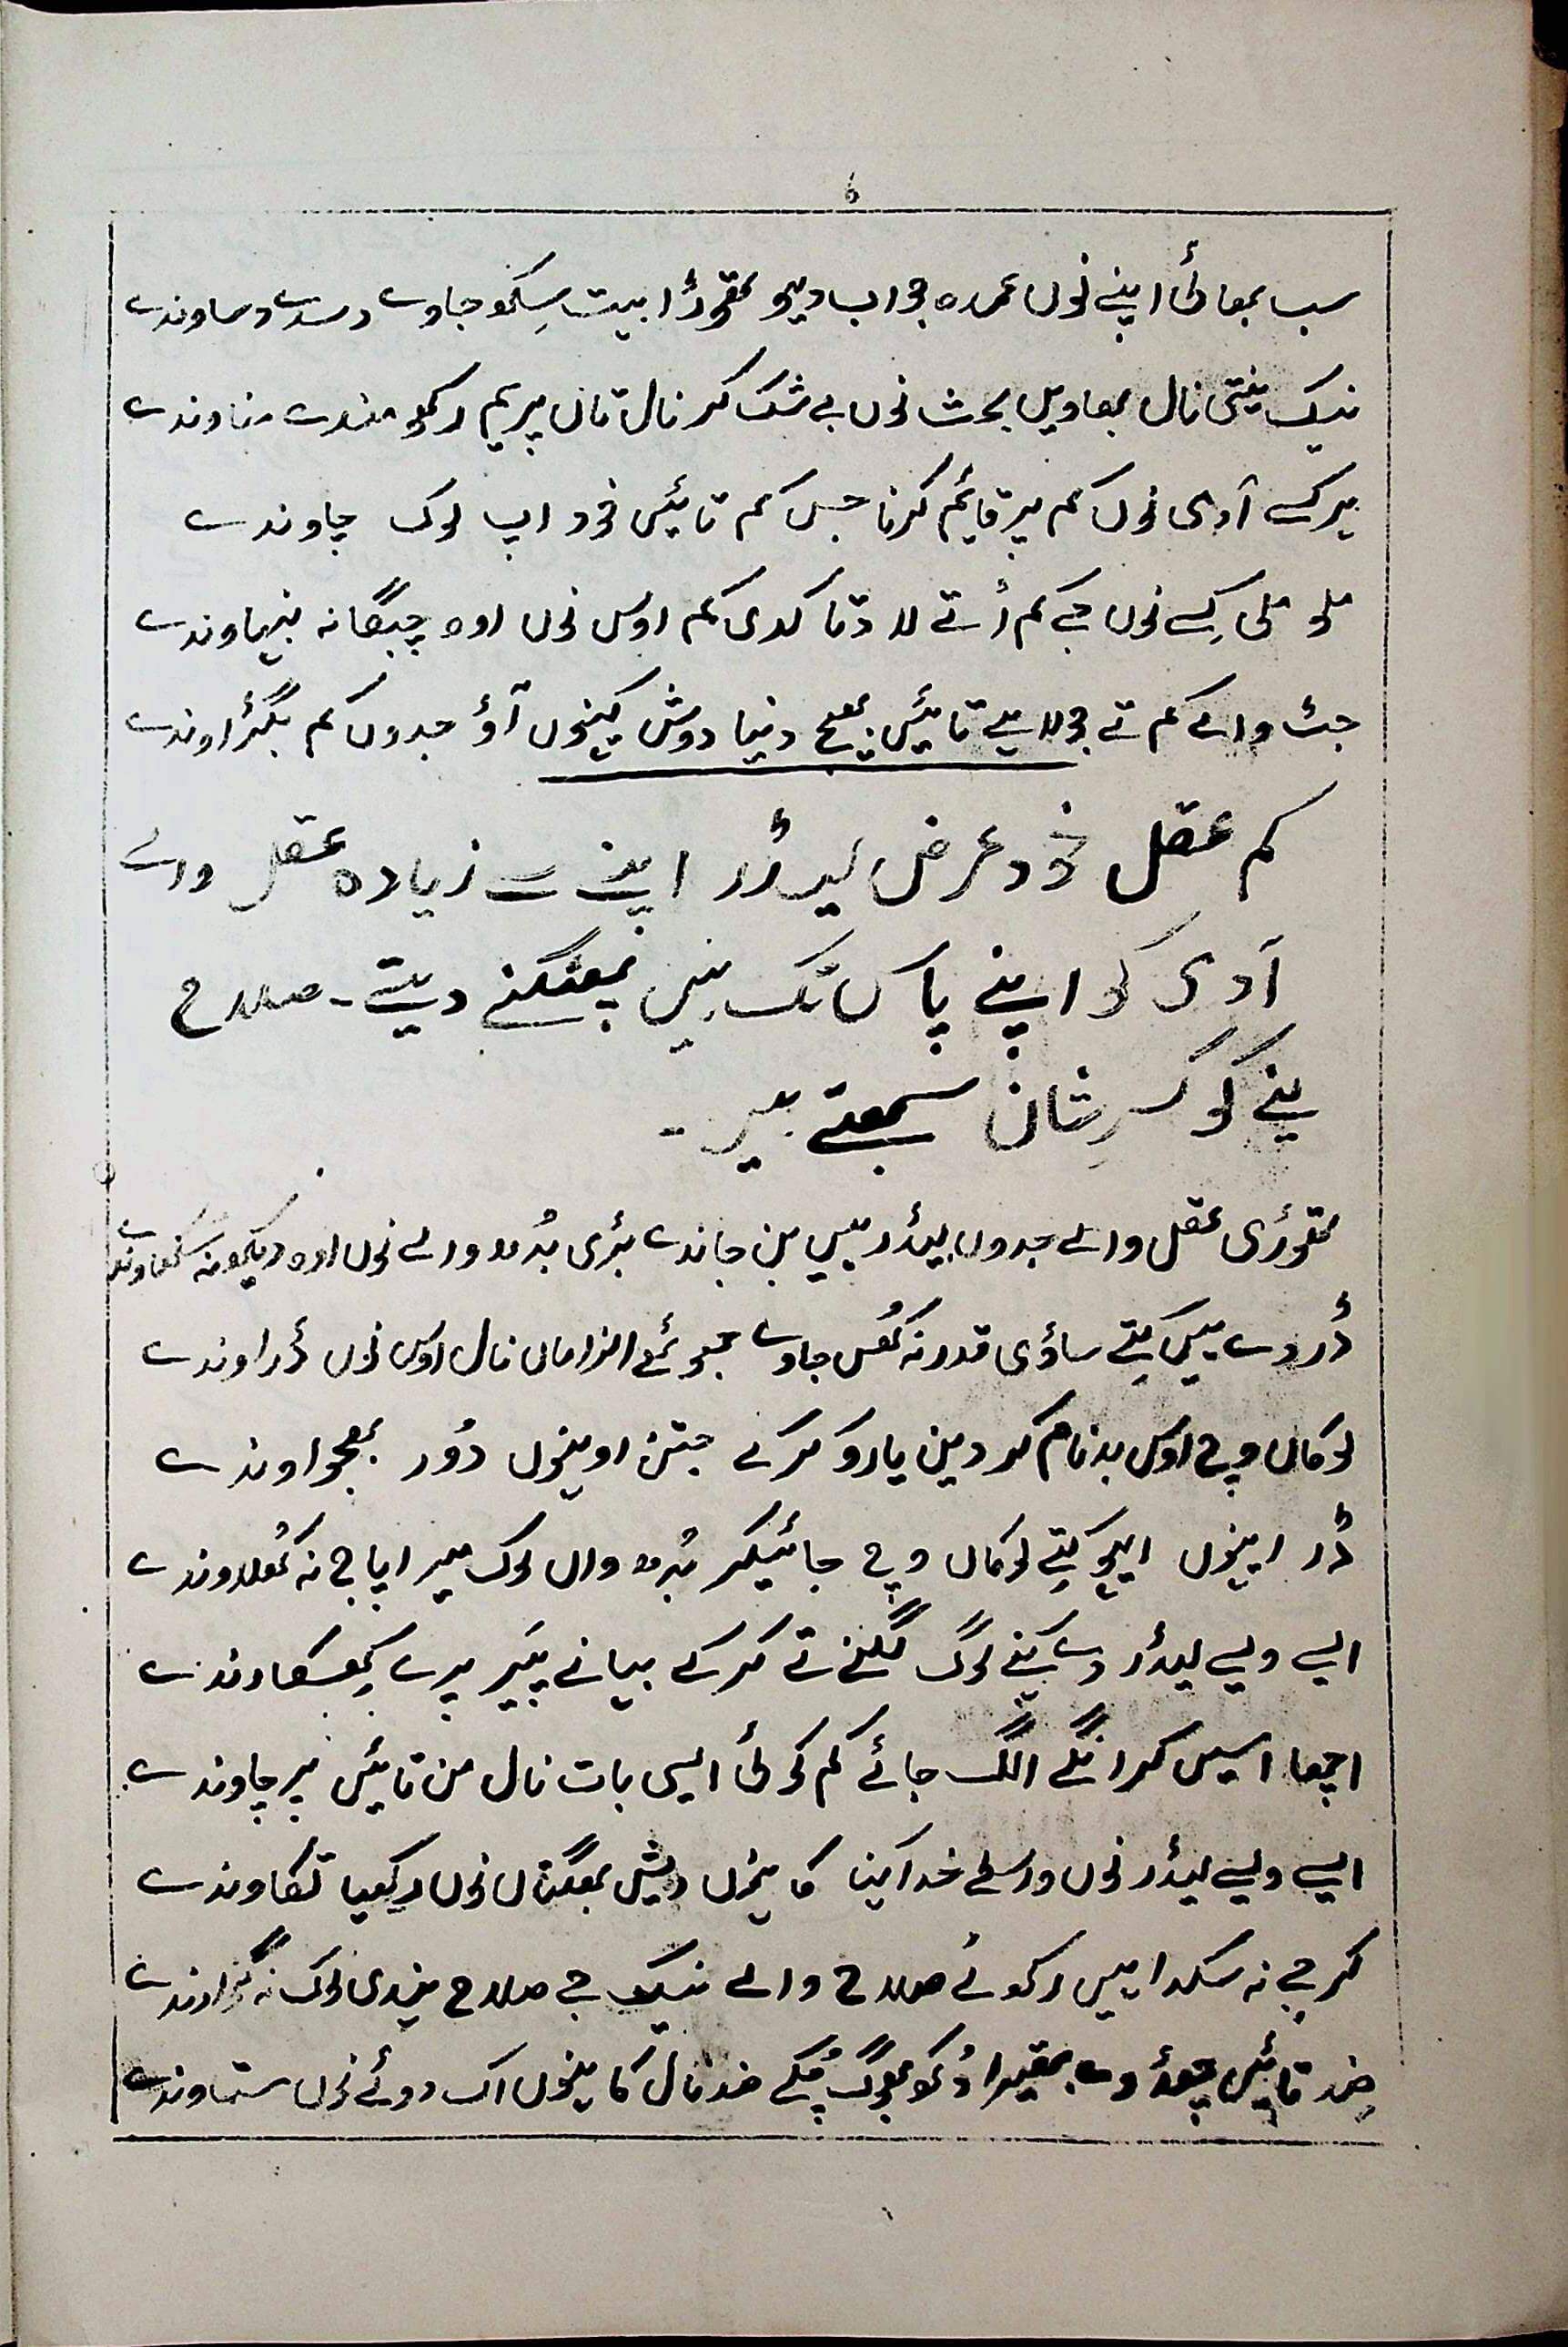 ۶
سب بھائی اپنے نوں عمدہ جواب دیو تھوڑا بہت سِکھ جاوے دسدے دساوندے
نیک نیتی نال بھاویں بحث نوں بے شک کر نال تاں پریم رکھو مندے مناوندے
ہر کسے آدمی نوں کم پر قائیم کرنا جس کم تائیں خود اپ لوک چاوندے
ملو ملی کِسے نوں جے کم اُتے لا دتا کدی کم اوس نوں اوہ چنگا نہ نبہاوندے
جٹ والے کم تے جولاہے تائیں بھیج دنیا دوش کینوں آؤ جدوں کم بگڑاوندے
کم عقل خود غرض لیڈر اپنے سے زیادہ عقل والے
آدمی کو اپنے پاس تک نہیں پھٹکنے دیتے ۔ صلاح
لینے کو کسرِ شان سمجھتے ہیں ۔
تھوڑی عقل والے جدوں لیڈر ہیں بن جاندے بڑی بُدھ والے نوں اوہ دیکھ نہ سکھاوندے
ڈردے ہیں کِتے ساڈی قدر نہ گھس جاوے جھوٹھے الزاماں نال اوس نوں ڈراوندے
لوکاں وچ اوس بدنام کر دین یارو کرکے جتن اوہنوں دُور بھجواوندے
ڈر ایہنوں ایہو کِتے لوکاں وچ جائیکر بُدھ وال لوک میرا پاج نہ کھلاوندے
ایسے ویسے لیڈر دے کہنے لوگ لگنے تے کرکے بہانے پیر پرے کھِسکاوندے
اچھا اسیں کراں گے الگ جائے کم کوئی ایسی بات نال من تائیں پرچاوندے
ایسے ویسے لیڈر نوں واسطے خدا کہنا کاہنوں دیش بھگتاں نوں رکھیا تکاوندے
کر جے نہ سکدا ہیں رکھ لے صلاح والے نیک جے صلاح دیندی لوک نہ گنواوندے
ضد تائیں چھڈ دے بتھیرا دُکھ بھوگ چُکے ضد نال کاہنوں اک دوئے نوں ستاوندے